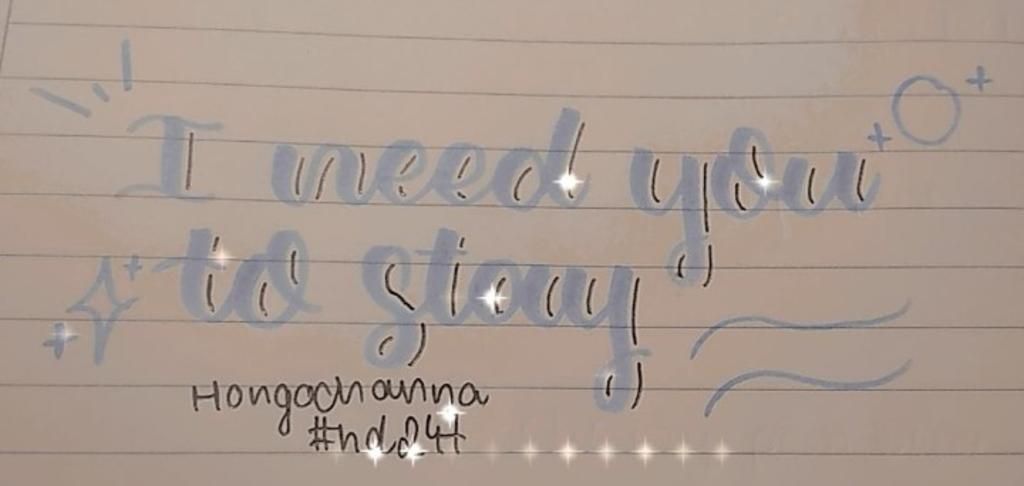 I need you
to stay
Hongochanna
#nd24t